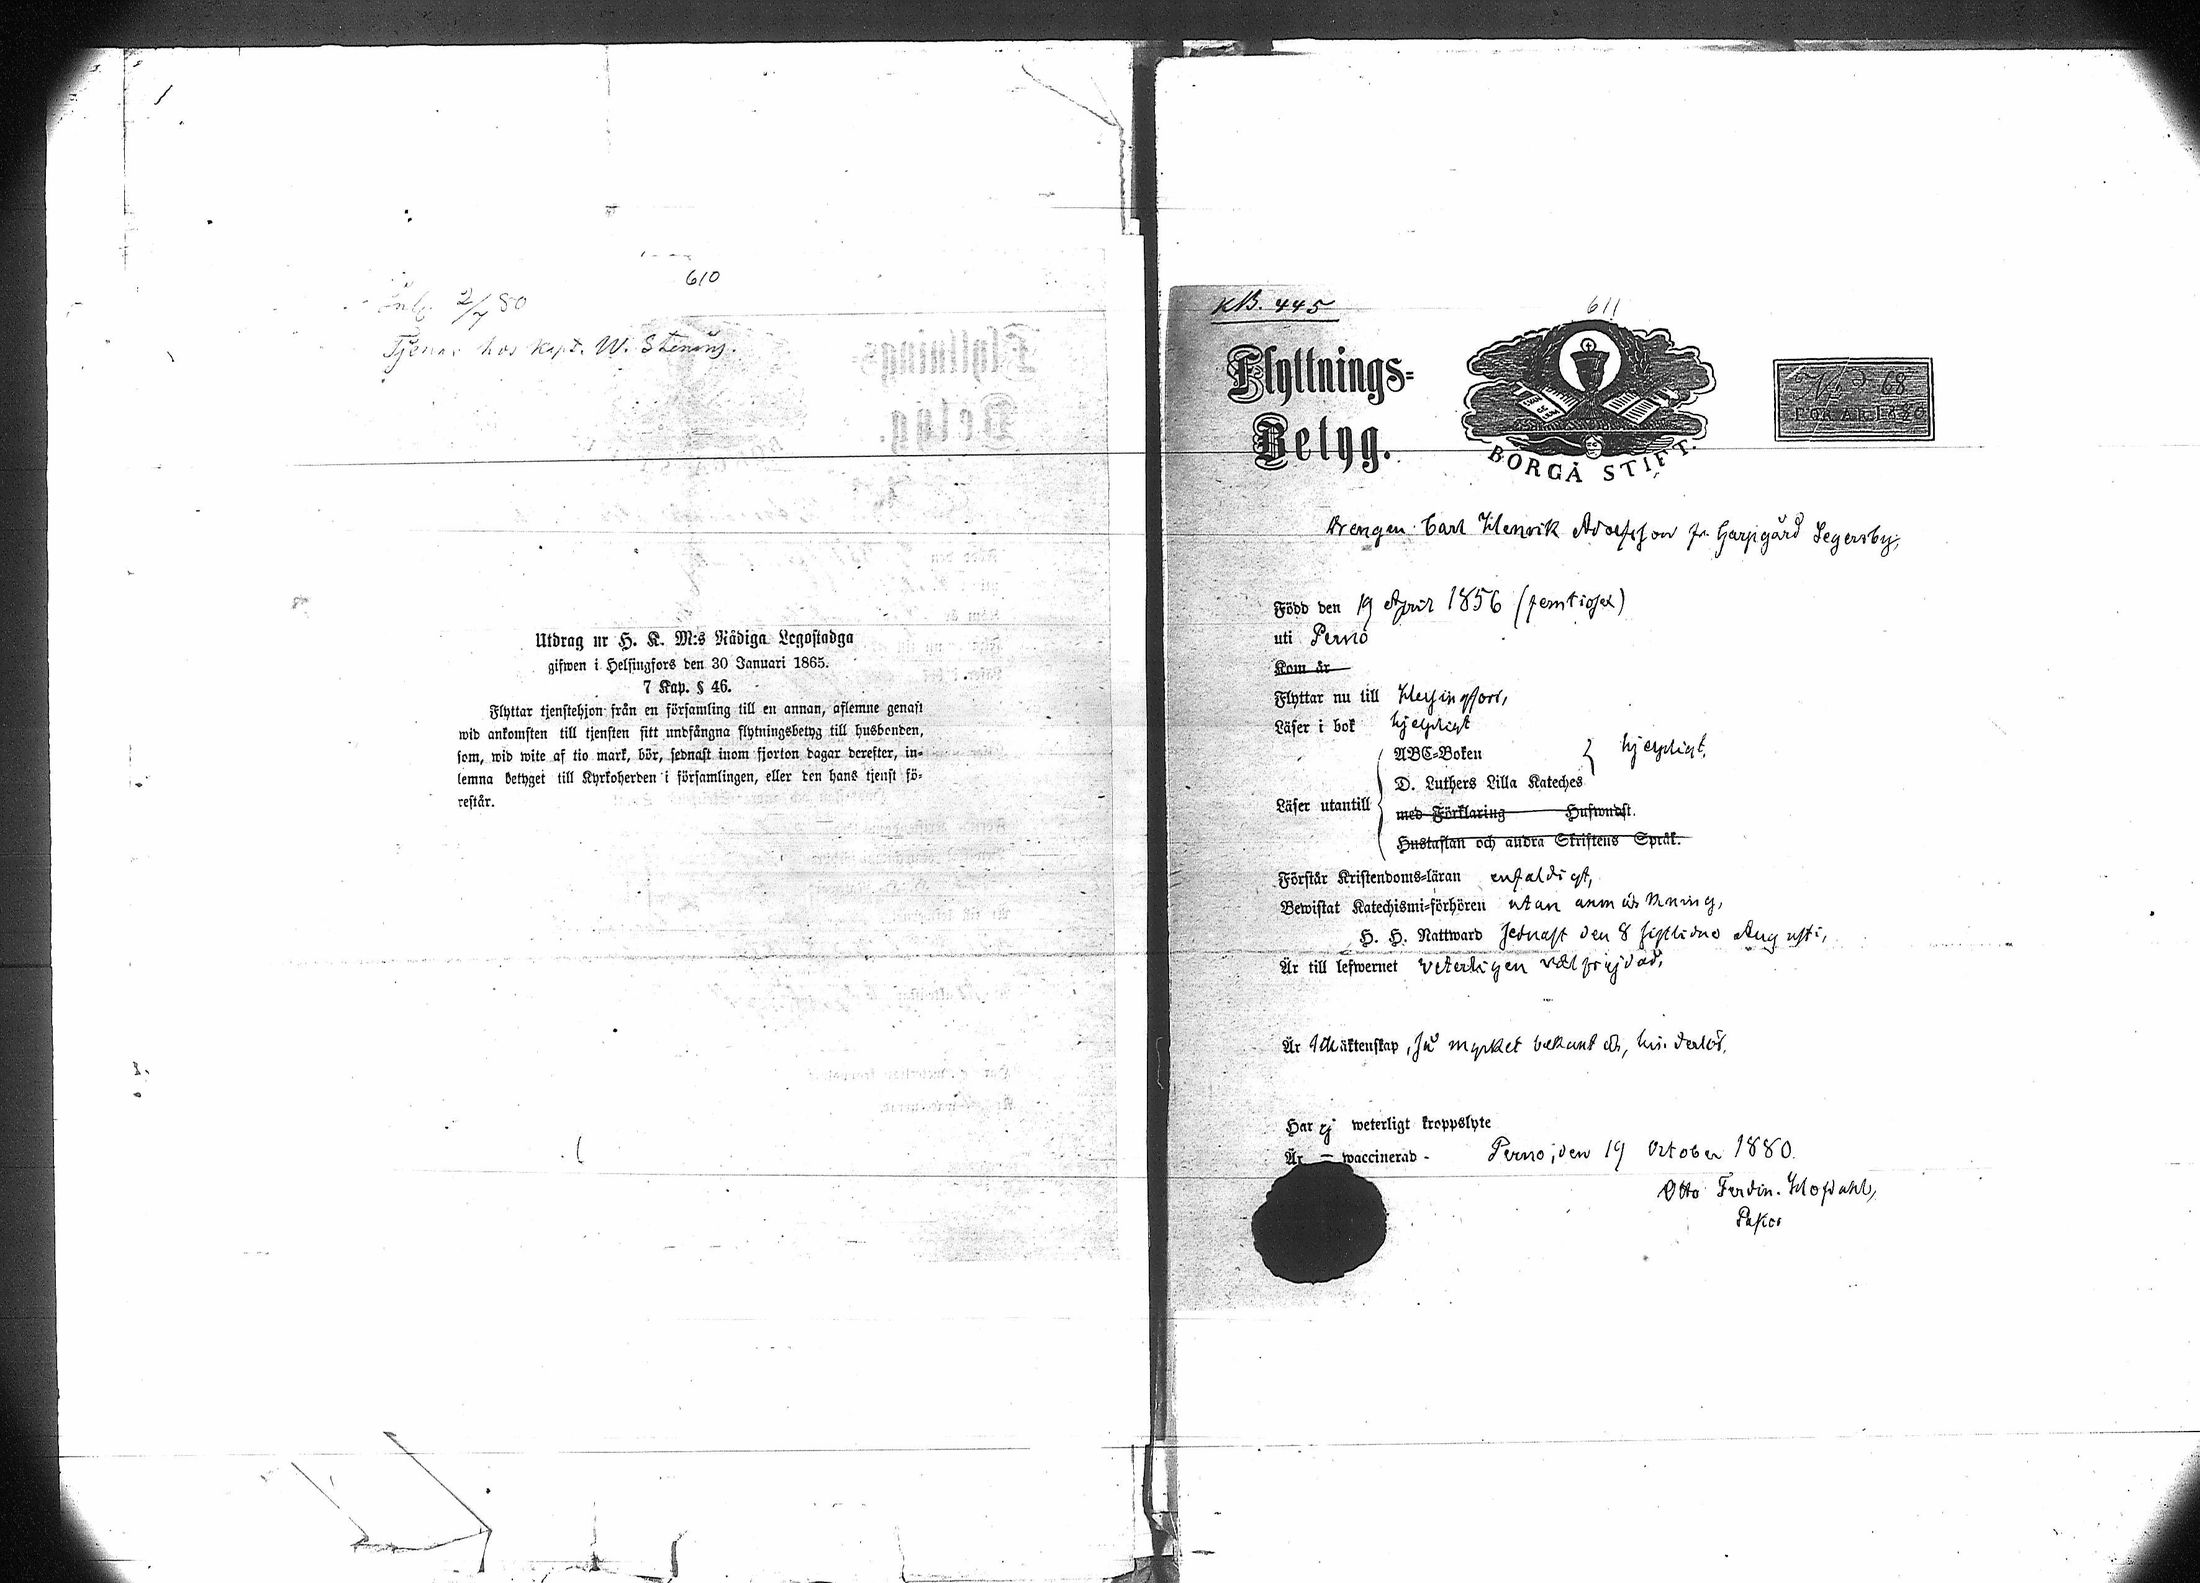 610
2/7 80
Tjenar hos Kapt. W. Stenius.
Utdrag ur H. K. M:s Nådiga Legostadga
gifwen i Helsingfors den 30 Januari 1865.
7 Kap. § 46.
Flyttar tjenstehjon från en församling till en annan, aflemne genast
wid ankomsten till tjensten sitt undfångna flytningsbetyg till husbonden,
som, wid wite af tio mark, bör, sednast inom fjorton dagar derefter, in-
lemna betyget till Kyrkoherden i församlingen, eller den hans tjenst fö-
restår.
KB. 445
611
Flyttnings-
Betyg.
BORGÅ STIFT.
68
FÖR ÅR 1880
Drengen Carl Henrik Adolfsson fr. Garpgård Segersby,
Född den 19 April 1856 (femtiosex)
uti Perno
Kom år
Flyttar nu till Helsingfors,
Läser i bok hjelpligt
ABC-Boken
hjelpligt.
D. Luthers Lilla Kateches
Läser utantill
med Förklaring Huswudst.
Hustaflan och andra Skriftens Språk.
Förstår Kristendoms-läran enfaldigt,
Bewistat Katechismi-förhören utan anmärkning,
H. H. Nattward sednast den 8 sistlidne Augusti,
Är till lefwernet veterligen välfrejdad,
Är till äktenskap, så mycket bekant är, hinderlös.
Har ej weterligt kroppslyte
Är = waccinerad - Perno, den 19 October 1880.
Otto Ferdin.
Pastor